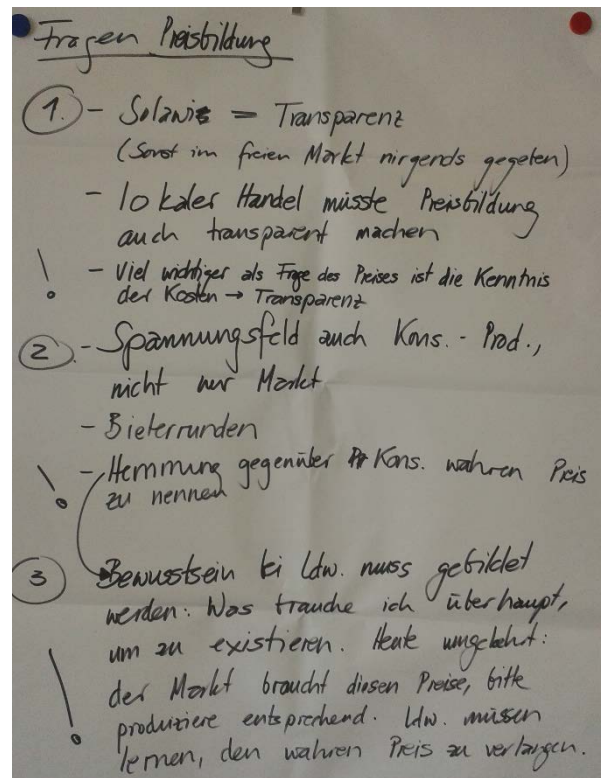 Fragen Preisbildung
1. - Solawis = Transparenz
(Sonst im freien Markt nirgends gegeben)
- lokaler Handel müsste Preisbildung
auch transparent machen
! - Viel wichtiger als Frage des Preises ist die Kenntnis
der Kosten → Transparenz
2. - Spannungsfeld auch Kons. - Prod.,
nicht nur Markt
- Bieterrunden
! - Hemmung gegenüber Kons. wahren Preis
zu nennen
3 Bewusstsein bei Ldw. muss gebildet
werden: Was brauche ich überhaupt,
um zu existieren. Heute umgekehrt:
! der Markt braucht diesen Preise, bitte
produziere entsprechend. Ldw. müssen
lernen, den wahren Preis zu verlangen.